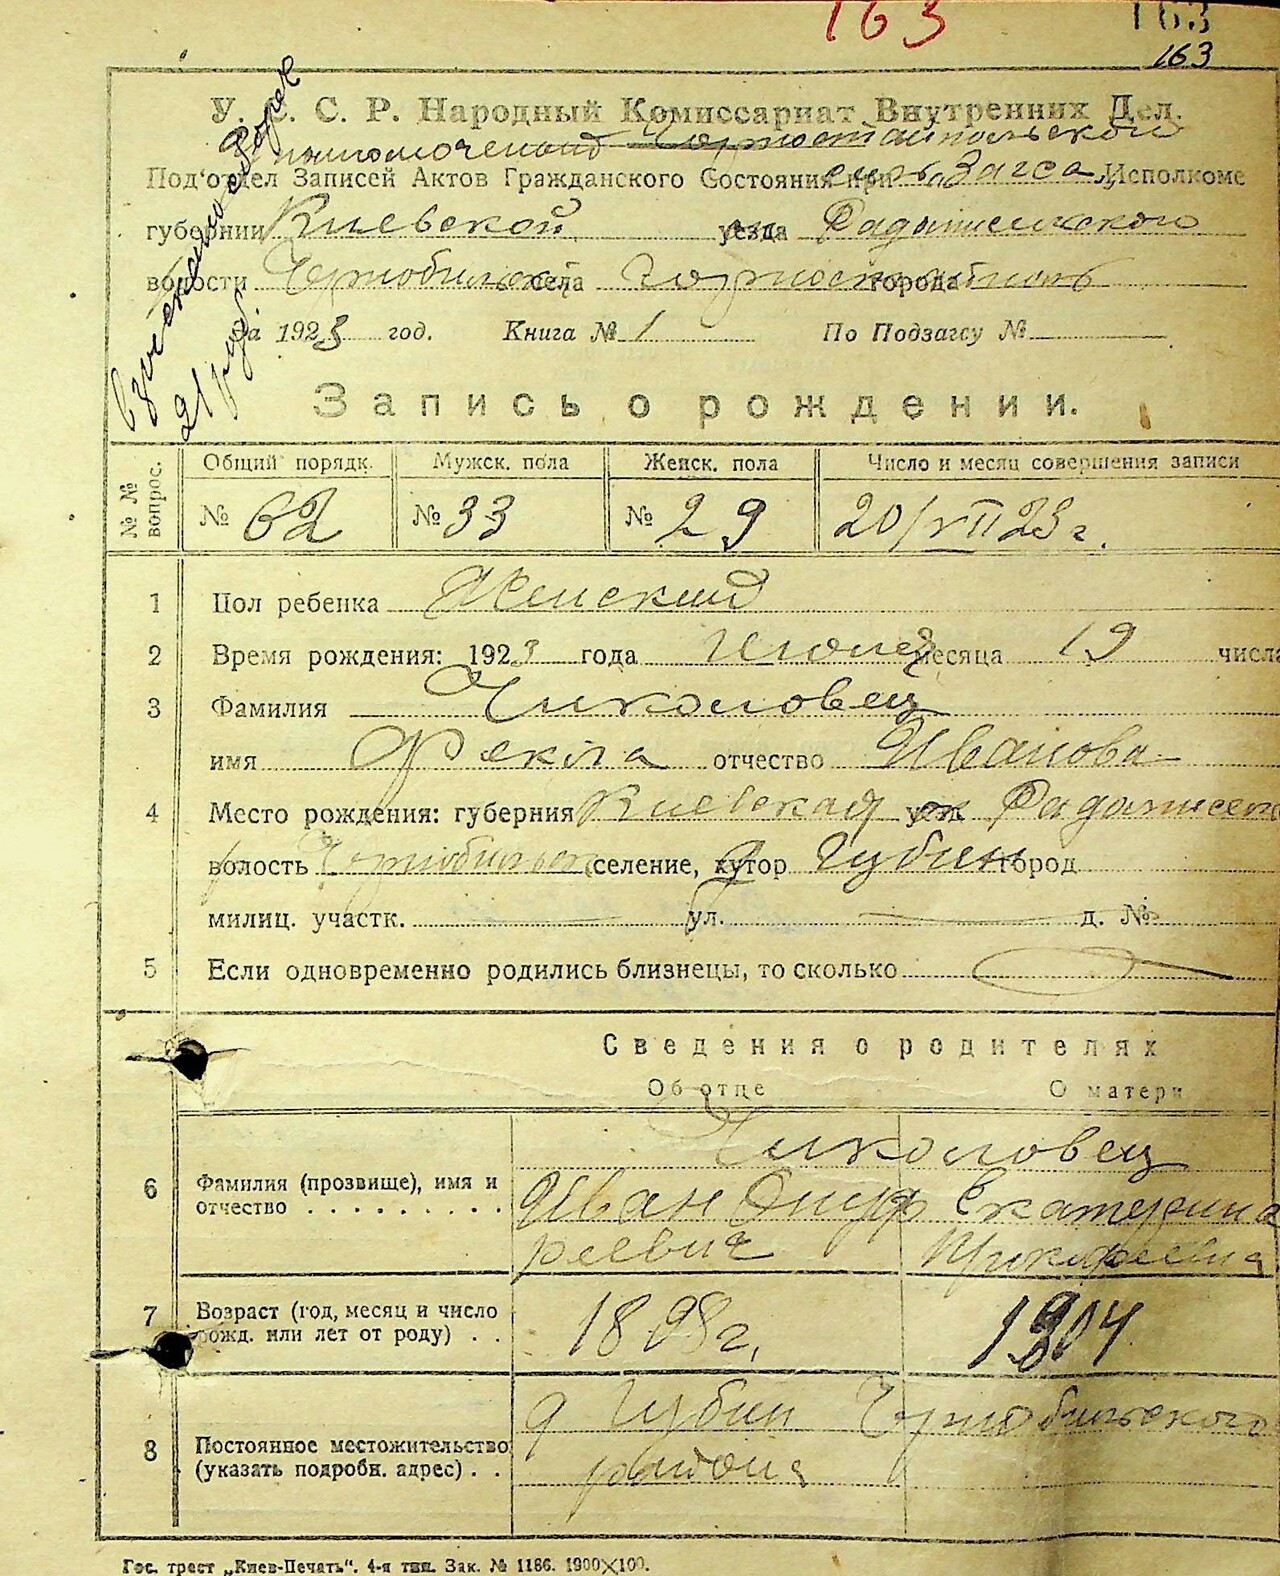 163
163
163
У. С. С. Р. Народный Комиссариат Внутренних Дел.
Горностайпольской
Под'отдел Записей Актов Гражданского Состояния при Загса Исполкоме
губернии Киевской уезда Радомисльского
волости Чернобильск села Горностайполь города
За 1923 год. Книга № 1 По Подзагсу №
Запись о рождении.
№ № вопрос. Общий порядк. Мужск. пола Женск. пола Число и месяц совершения записи
№ 62 № 33 № 29 20/VII 23 г.
1 Пол ребенка Женский
2 Время рождения: 1923 года Июля месяца 19 числа
3 Фамилия Чиколовец
имя Фекла отчество Иванова
4 Место рождения: губерния Киевская уезд Радомисльск
волость Чернобильск селение, хутор Губин город
милиц. участк. ул. д. №
5 Если одновременно родились близнецы, то сколько
Сведения о родителях
Об отце О матери
Чиколовец
6 Фамилия (прозвище), имя и отчество Иван Онуф Екатерина
риевич
7 Возраст (год, месяц и число рожд. или лет от роду) 1898 г. 1904
8 Постоянное местожительство (указать подробн. адрес) д Губин Чернобильского
района
Гос. трест „Киев-Печать“. 4-я тип. Зак. № 1186. 1900×100.